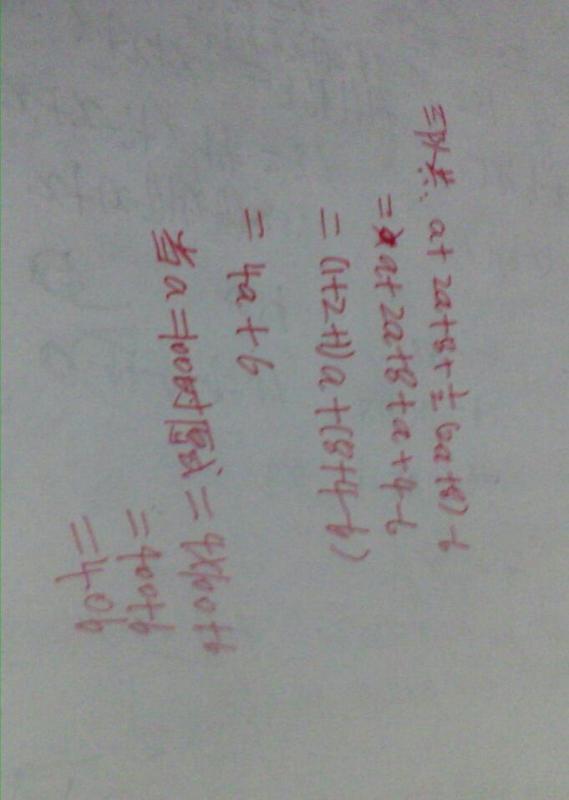 三队共: a+2a+8+½(2a+8)-6
=a+2a+8+a+4-6
=(1+2+1)a+(8+4-6)
=4a+6
当a=100时 原式=4×100+6
=400+6
=406